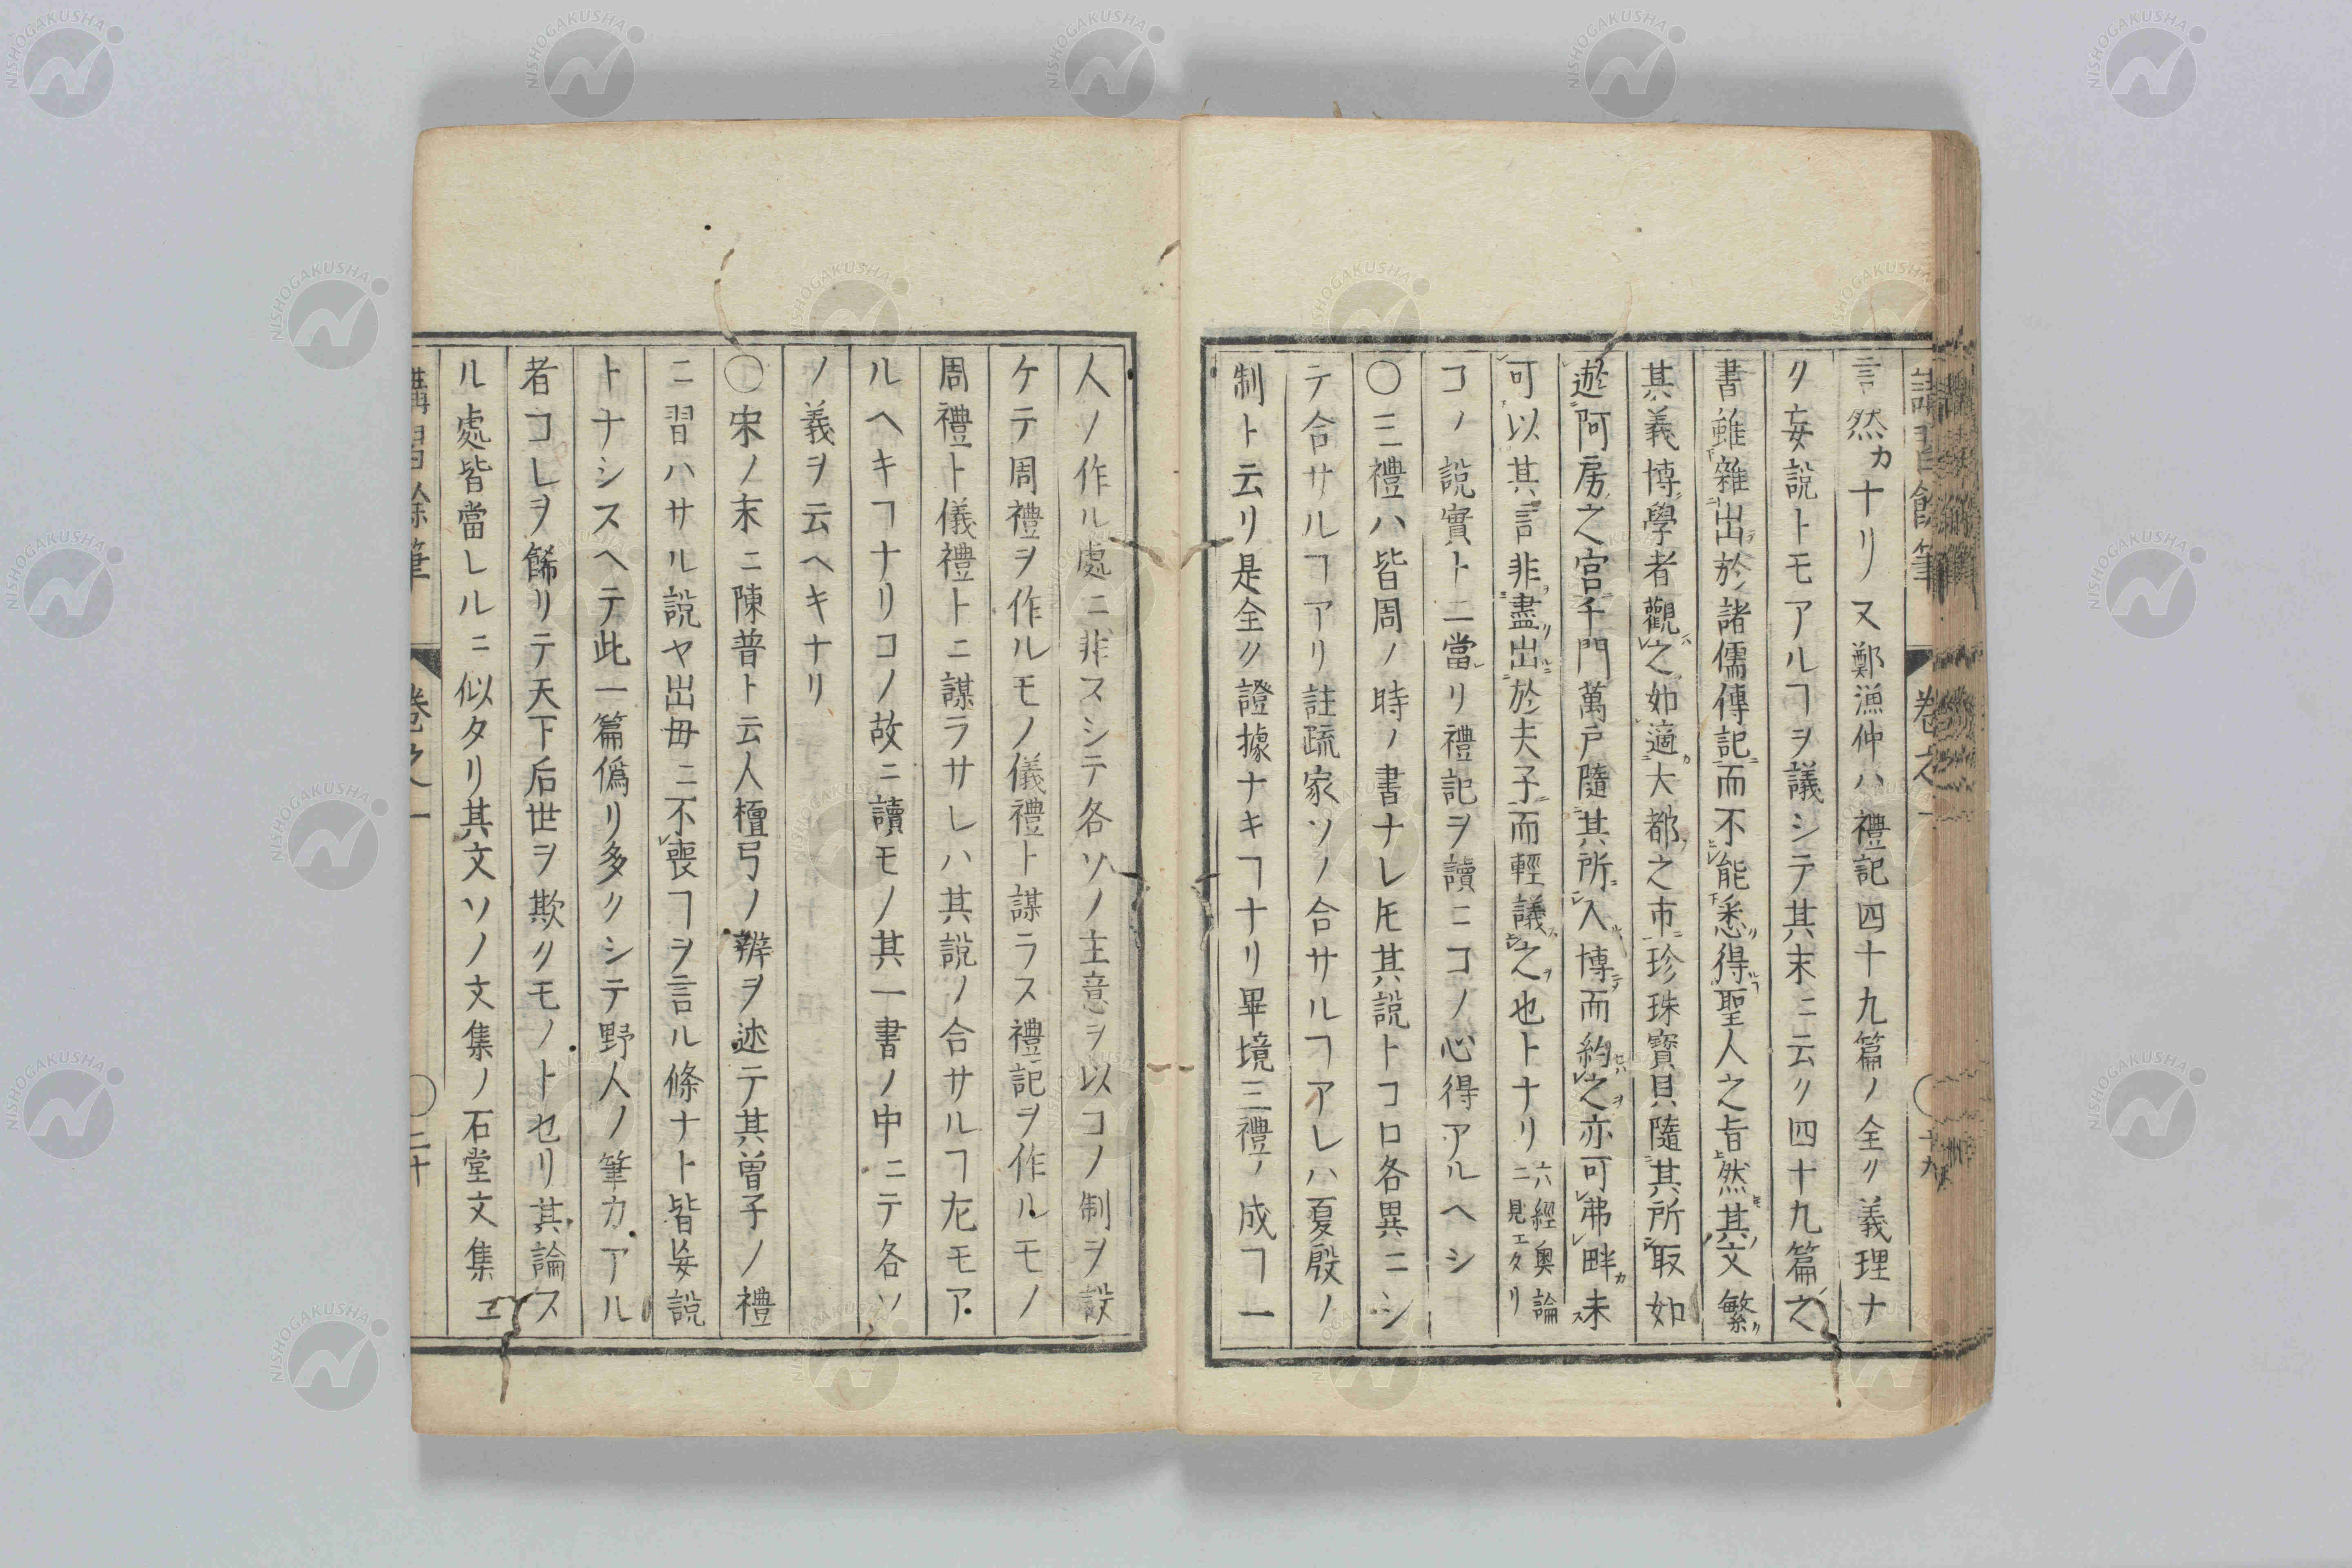 講習餘筆 卷之一 十九
言然カナリ又鄭漁仲ハ禮記四十九篇ノ全ク義理ナ
ク妄說トモアルヿヲ議シテ其末ニ云ク四十九篇之
書雖雜出於諸儒傳記而不能悉得聖人之旨然其文繁
其義博學者觀之如適大都之市珍珠寶貝隨其所取如
遊阿房之宮千門萬戶隨其所入博而約之亦可弗畔未
可以其言非盡出於夫子而輕議之也トナリ六經奧論ニ見エタリ
コノ說實ト二當リ禮記ヲ讀ニコノ心得アルヘシ
〇三禮ハ皆周ノ時ノ書ナレ𪜈其說トコロ各異ニシ
テ合サルヿアリ註疏家ソノ合サルヿアレハ夏殷ノ
制ト云リ是全ク證據ナキヿナリ畢境三禮ノ成ヿ一
人ノ作ル處ニ非スシテ各ソノ主意ヲ以コノ制ヲ設
ケテ周禮ヲ作ルモノ儀禮ト謀ラス禮記ヲ作ルモノ
周禮ト儀禮トニ謀ラサレハ其說ノ合サルヿ尤モア
ルヘキヿナリコノ故ニ讀モノ其一書ノ中ニテ各ソ
ノ義ヲ云ヘキナリ
〇宋ノ末ニ陳普ト云人檀弓ノ辨ヲ述テ其曾子ノ禮
ニ習ハサル說ヤ出母ニ不喪ヿヲ言ル條ナト皆妄說
トナシスヘテ此一篇僞リ多クシテ野人ノ筆力アル
者コレヲ餙リテ天下后世ヲ欺クモノトセリ其論ス
ル處皆當レルニ似タリ其文ソノ文集ノ石堂文集ニ
講習餘筆 卷之一 二十
NISHOGAKUSHA